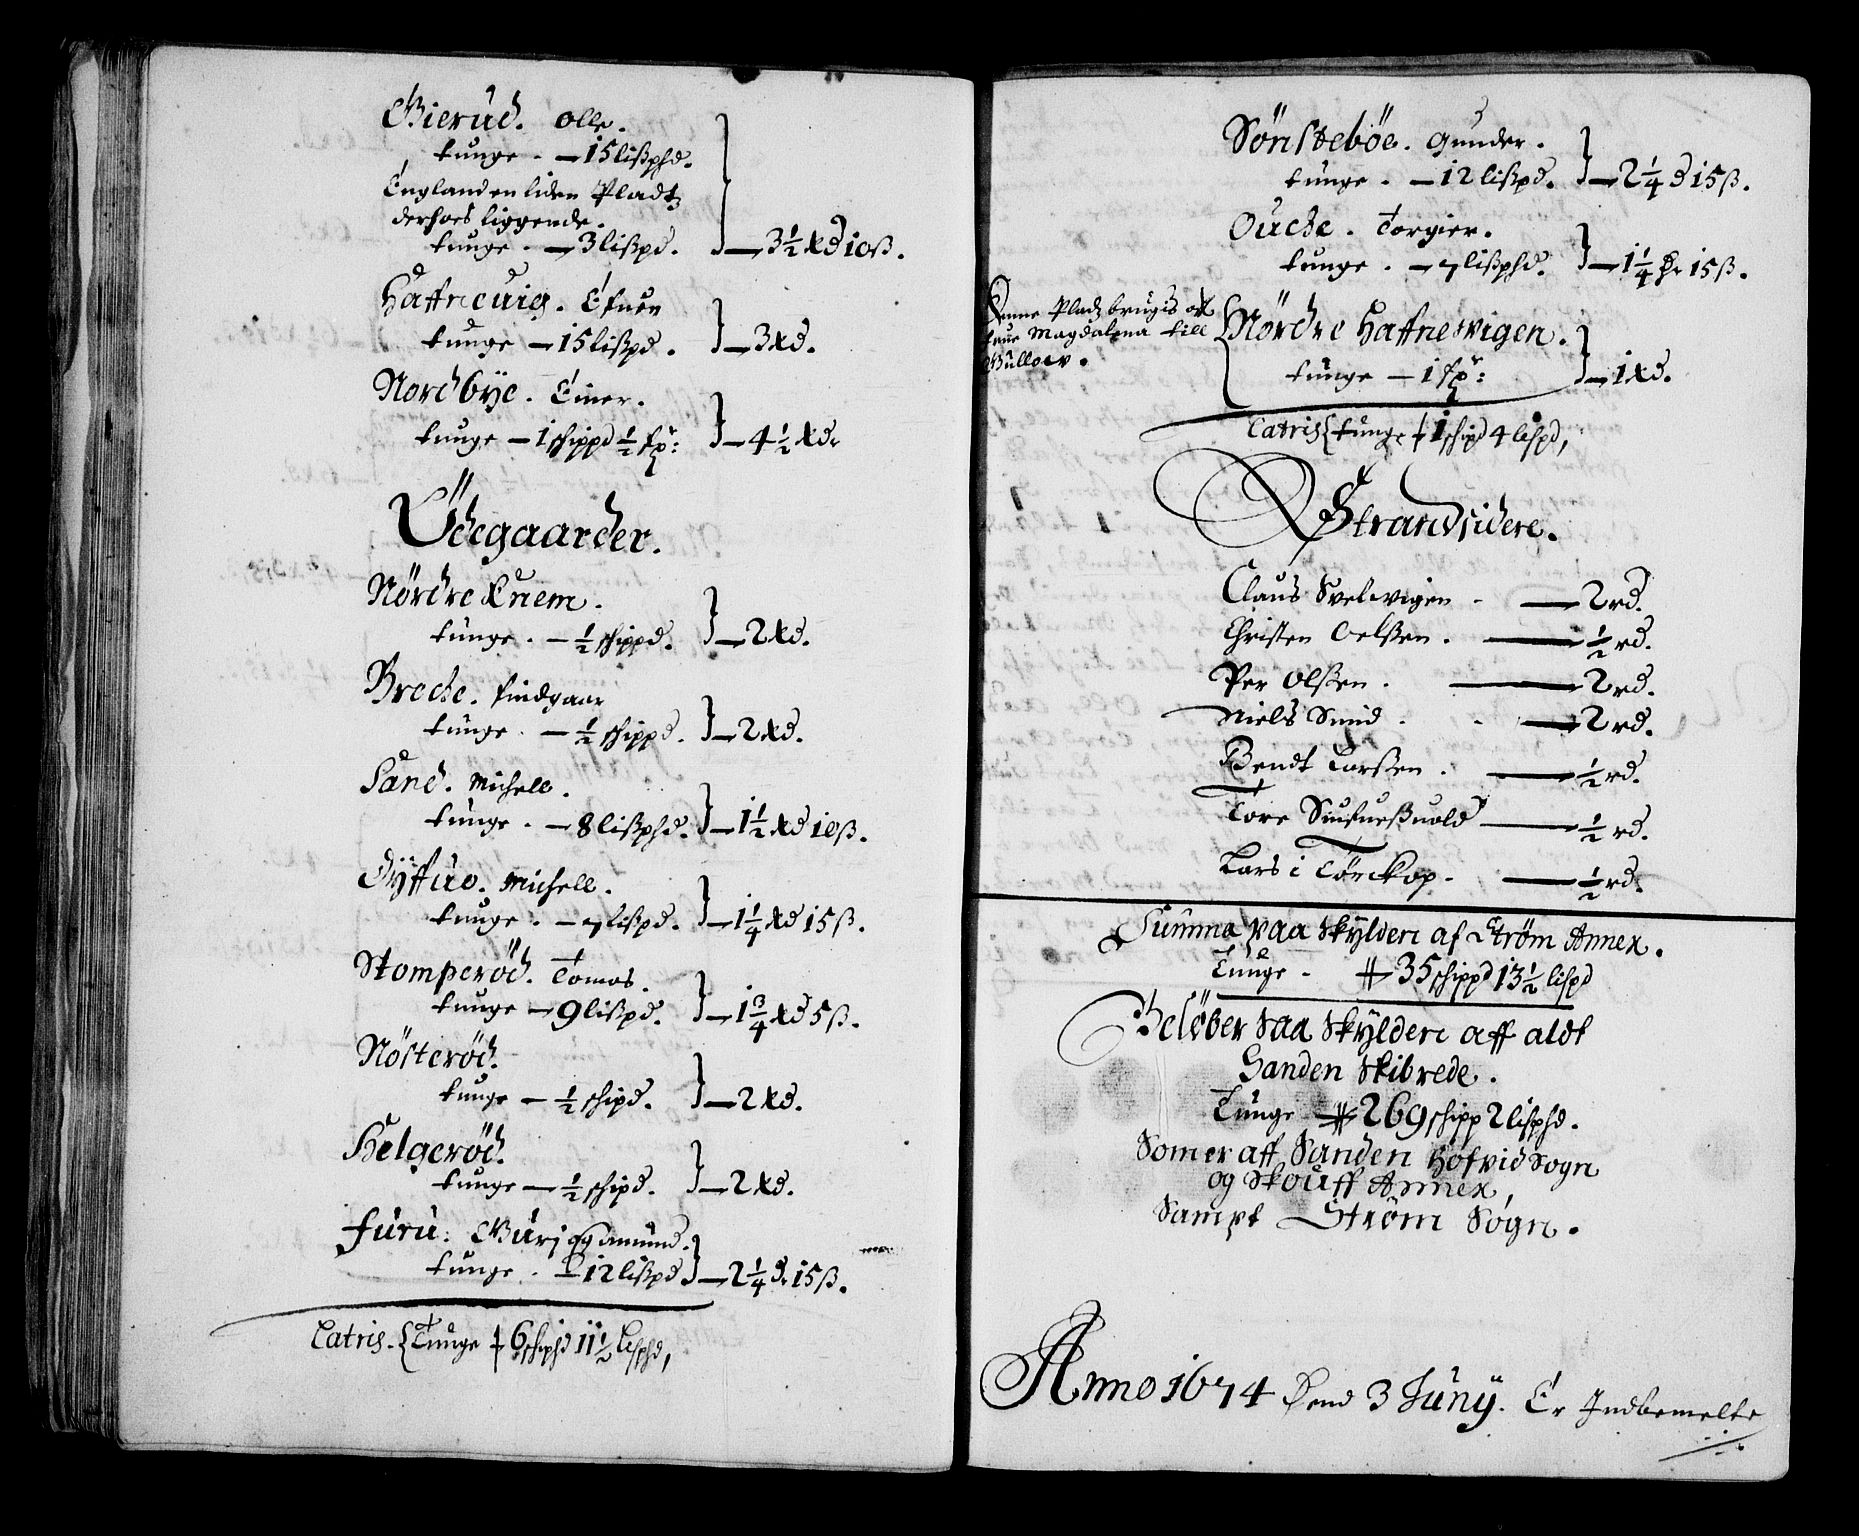 Gierud. Olle.
tunge. — 15 lißphd.
England en liden Pladtz
derhoes liggende.
tunge. — 3 lißpd. — 3½ xd 10 ß.
Haffneuig. Efuen
tunge — 15 lißpd. — 3 xd.
Nordbÿe. Einer.
tunge — 1 schippd ½ fp: — 4½ xd.
Ödegaarder.
Nördre Knem.
tunge. — ½ schippd. — 2 xd.
Brecke. findgaar
tunge. — ½ schippd. — 2 xd.
Sand. Michell.
tunge. — 8 lißphd. — 1½ xd 10 ß.
Dÿffuo. Michell.
tunge. — 7 lißpd. — 1¼ xd 15 ß.
Stomperöd. Tomas.
tunge — 9 lißpd. — 1¾ xd 5 ß.
Nösteröd.
tunge — ½ schipd. — 2 xd.
Helgeröd.
tunge — ½ schipd. — 2 xd.
furu: Gurj og Amund.
tunge. — 12 lißpd — 2¼ d. 15 ß.
Latris. { Tunge 6 schiphd 11½ lisphd,
Sönsteböe. Gunder.
tunge. — 12 lißpd. — 2¼ d 15 ß.
Oucke. Torgier.
tunge. — 7 lißphd. — 1¼ dr 15 ß.
Denne Pladz brugis af
frue Magdalena till
Gulloev.
Nördre Haffnewigen.
tunge — 1 fpr: — 1 xd.
Latris { tunge 1 schipd 4 lispd,
Strandsidere.
Claus Svelwigen — 2 rd.
Christen Oelßen. — ½ rd.
Per Olßen. — 2 rd.
Niels Smid. — 2 rd.
Bendt Larßen. — ½ rd.
Tore — ½ rd.
Lars i Törckop. — ½ rd.
Summa paa Skÿlden af Ström Annex.
Tunge. 35 schippd 13½ lispd
Belöber saa Skÿlden aff aldt
Sanden Skibrede.
Tunge 269 schipp 2 lisphd.
Somer aff Sanden Hofvid Sogn
og Skouff Annex,
Sampt Ström Sogn.
Anno 1674 Dend 3 Junÿ. Er Indbemelte